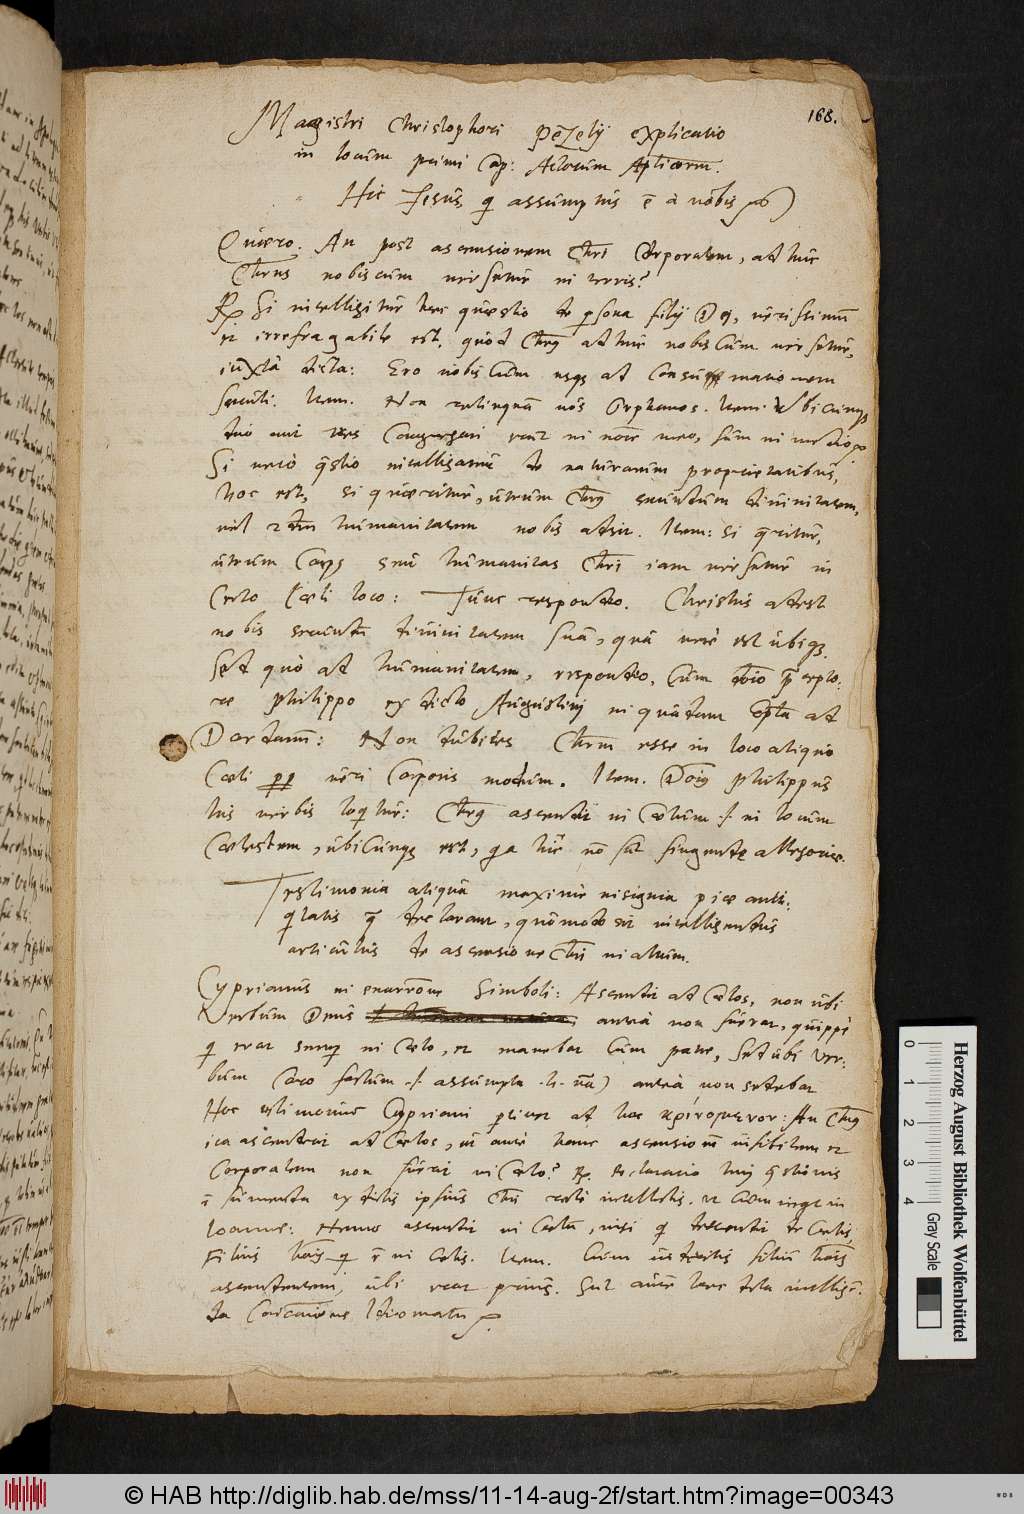 168.
Magistri Christophori Pezelij explicatio
in locum primi Cap: Actorum Aplicorum.
Hic Iesus q assumptus ē à nobis
Quæro. An post ascensionem Chri Corporalem, adhuc
Chrus nobiscum versetur in terris?
Rp Si intelligitur hæc quæstio de psona filij Dei, verissimum
et irrefragabile est, quòd Chrus adhuc nobiscum versetur,
iuxta dicta: Ero vobiscum usque ad Consummationem
sæculi. Item. Non relinquam vos Orphanos. Item. Ubicunque
duo aut tres Congregati erunt in noie meo, sum in medio
Si verò qstio intelligatur de naturarum proprietatibus,
hoc est, si quæritur, utrum Chrus secundum divinitatem,
vel humanitatem nobis adsit. Item: si qritur,
utrum Corpus seu humanitas Chri iam versetur in
Certo Cæli loco: Tunc respondeo. Christus adest
nobis secundum divinitatem suā, quā verè est ubique.
Sed quo ad humanitatem, respondeo, Cum Dnō præcepto-
re Philippo ex dicto Augustini in quadam Epla ad
Dardanum: Non dubites Chrum esse in loco aliquo
Cæli pp veri Corporis modum. Item. Philippus
his verbis loqtur: Chrus ascendit in Cælum .i. in locum
Cælestem, ubicunque est, qa hic nō sut fingendæ allegoriæ.
Testimonia aliqua maximè insignia piæ anti-
qtatis quæ declarant, quomodo sit intelligendus
articulus de ascensione Chri in cælum.
Cyprianus in enarrōne Simboli: Ascendit ad Cælos, non ubi
Verbum Deus anteà non fuerat, quippè
q erat semp in Cælo, et manebat Cum patre, sed ubi Ver-
bum Caro factum .i. assumpta .h. nā) anteà non sedebat
Hoc testimonium Cypriani ptinet ad hoc κρινόμενον: An Chrus
ita ascenderit ad Cælos, ut ante hanc ascensionē visibilem et
Corporalem non fuerit in Cælo? Rp. Declaratio huius qstionis
ē sumenda ex dictis ipsius Chri rectè intellectis. ut Cum inqt in
Ioanne: Nemo ascendit in Cælū, nisi q descendit de Cælis,
Filius hois q ē in Cælis. Item. Cum videritis filiū hois
ascendentem, ubi erat prius. Sut autē hæc dicta intelligē-
da Idiomatū
0 1 2 3 4
Gray Scale
Herzog August Bibliothek Wolfenbüttel
© HAB http://diglib.hab.de/mss/11-14-aug-2f/start.htm?image=00343